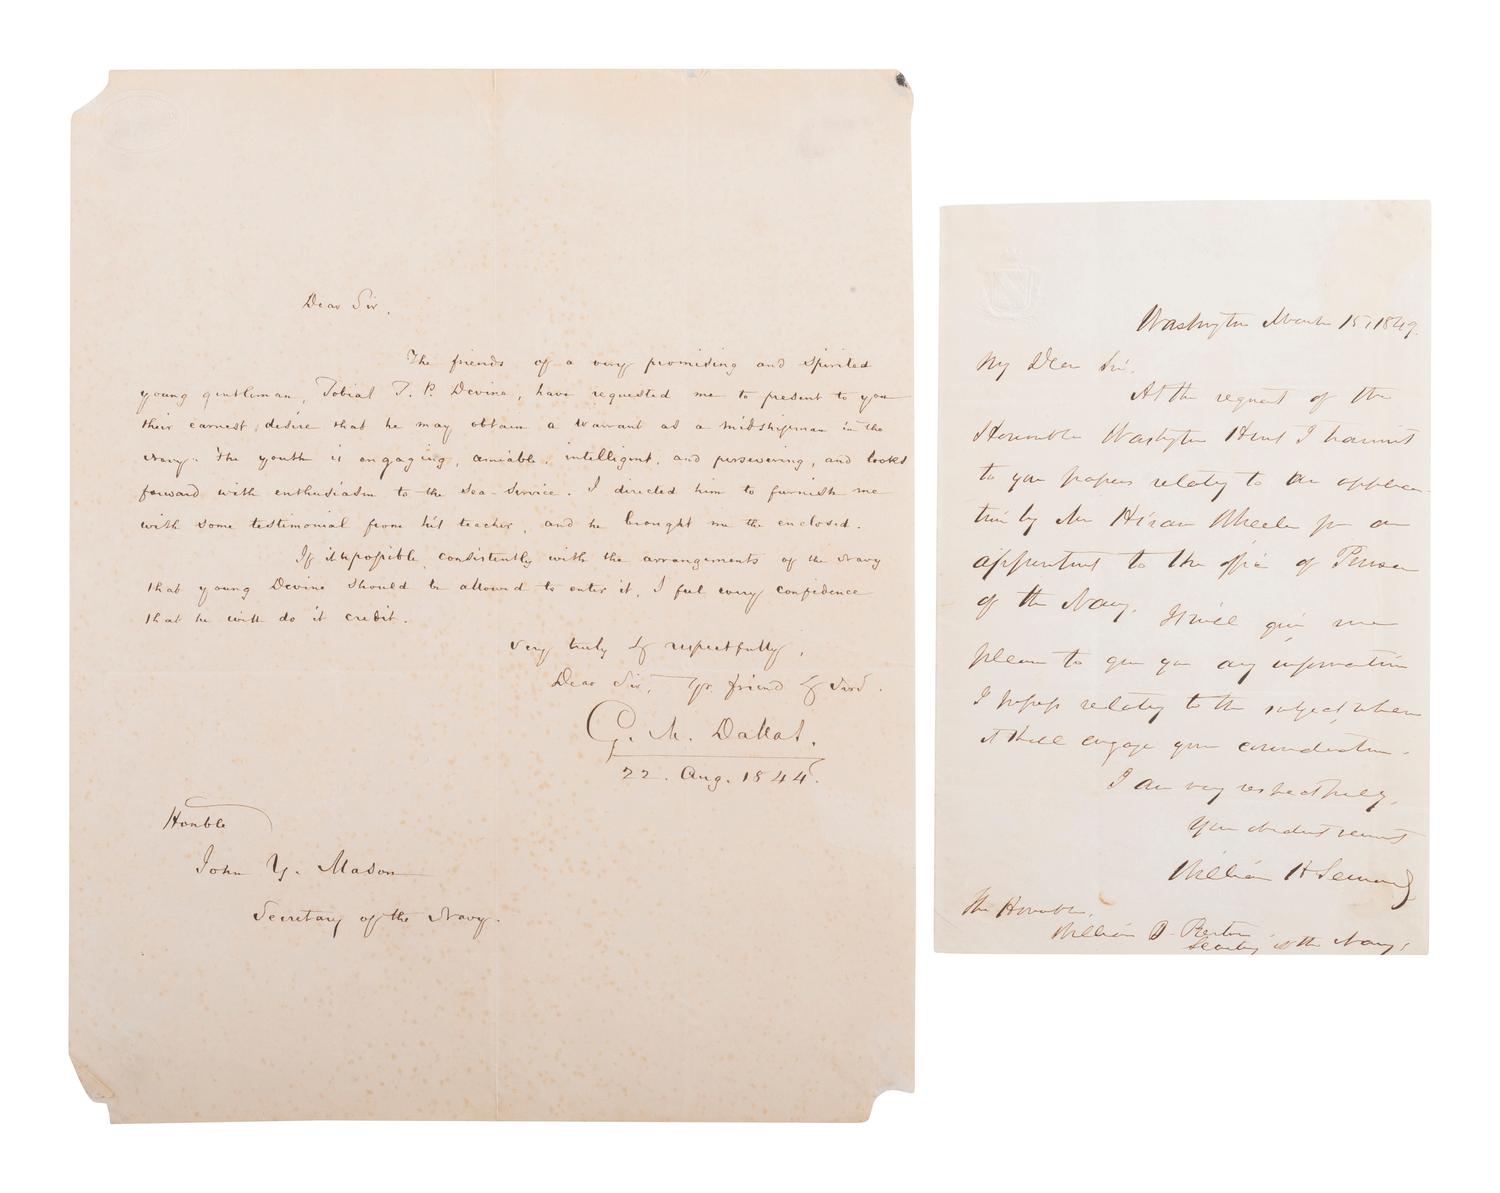 Dear Sir,
The friends of a very promising and spirited
young gentleman, Tobias T. P. Devine, have requested me to present to you
their earnest desire that he may obtain a warrant as a midshipman in the
Navy. The youth is engaging, amiable, intelligent, and persevering, and looks
forward with enthusiasm to the Sea-Service. I directed him to furnish me
with some testimonial from his teacher, and he brought me the enclosed.
If it is possible, consistently with the arrangements of the Navy
that young Devine should be allowed to enter it, I feel every confidence
that he will do it credit.
very truly & respectfully,
Dear Sir, Yr. friend & Svt.
G. M. Dallas.
22. Aug. 1844.
Honble
John Y. Mason
Secretary of the Navy.
Washington March 15, 1849.
My Dear Sir.
At the request of the
Honorable Washington Hunt I transmit
to you papers relating to an applica-
tion by Mr Hiram Wheeler for an
appointment to the office of Purser
of the Navy. It will give me
pleasure to give you any information
I possess relating to the subject when
it shall engage your consideration.
I am very respectfully,
Your obedient servant
William H Seward
The Honorable,
William B. Preston
Secretary of the Navy,